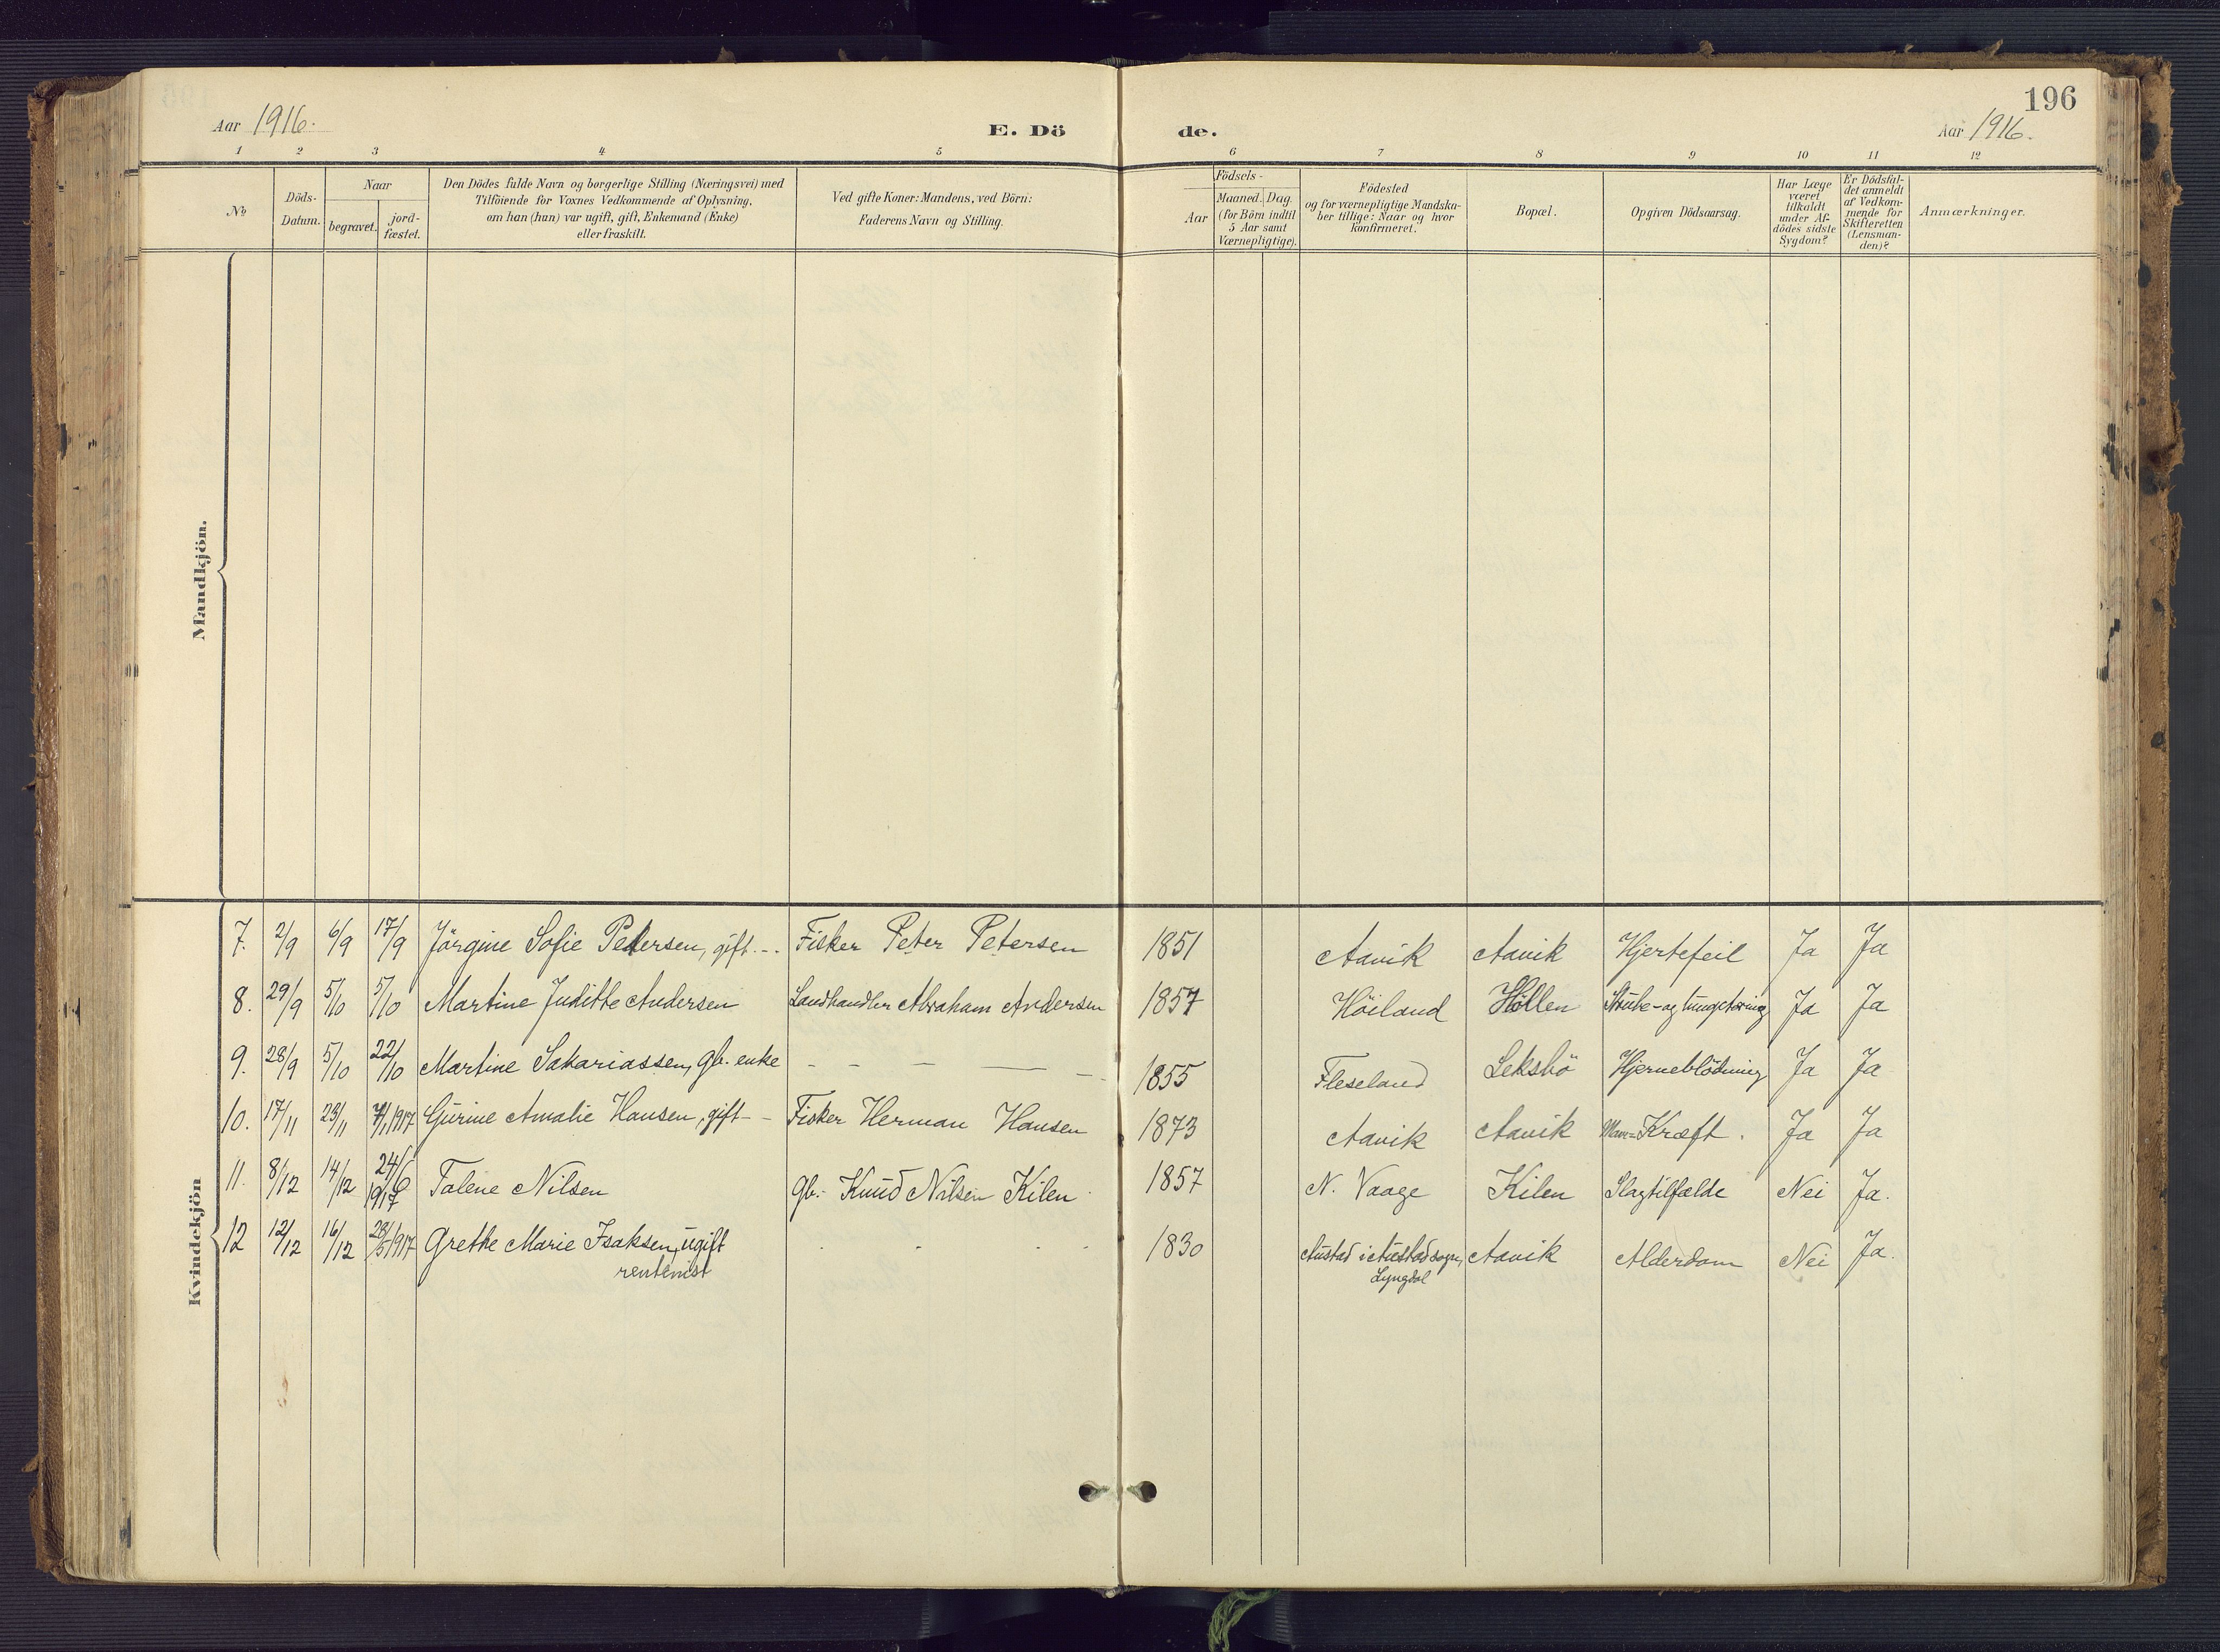 196
Aar 1916.
E. Dö
de.
Aar 1916.
1 2 3 4 5 6 7 8 9 10 11 12
No
Döds-
Datum.
Naar
begravet.
jord-
fæstet.
Den Dödes fulde Navn og borgerlige Stilling (Næringsvei) med
Tilföiende for Voxnes Vedkommende af Oplysning,
om han (hun) var ugift, gift, Enkemand (Enke)
eller fraskilt.
Ved gifte Koner: Mandens, ved Börn:
Faderens Navn og Stilling.
Födsels-
Aar
Maaned. Dag.
(for Börn indtil
5 Aar samt
Værnepligtige).
Födested
og for værnepligtige Mandska-
ber tillige: Naar og hvor
konfirmeret.
Bopæl.
Opgiven Dödsaarsag.
Har Læge
været
tilkaldt
under Af-
dödes sidste
Sygdom?
Er Dödsfal-
det anmeldt
af Vedkom-
mende for
Skifteretten
(Lensman-
den)?
Anmærkninger.
Mandkjön.
Kvindekjön
7. 2/9 6/9 17/9 Jörgine Sofie Petersen, gift. - - Fisker Peter Petersen 1851 Aavik Aavik Hjertefeil Ja Ja
8. 29/9 5/10 5/10 Martine Juditte Andersen Landhandler Abraham Andersen 1857 Höiland Höllen Strube- og lungetæring Ja Ja
9. 28/9 5/10 22/10 Martine Sakariassen, gb. enke - - - - - 1855 Fleseland Seksbö Hjerneblödning Ja Ja
10. 17/11 23/11 7/1 1917 Gurine Amalie Hansen, gift - - Fisker Herman Hansen 1873 Aavik Aavik Mave=Kræft. Ja Ja
11. 8/12 14/12 24/6 1917 Talene Nilsen gb. Knud Nilsen Kilen 1857 N. Vaage Kilen Slagtilfælde Nei Ja.
12 12/12 16/12 28/5 1917 Grethe Marie Isaksen, ugift 1830 Austad i Austad sogn, Aavik Alderdom Nei Ja.
rentenist
Lyngdal